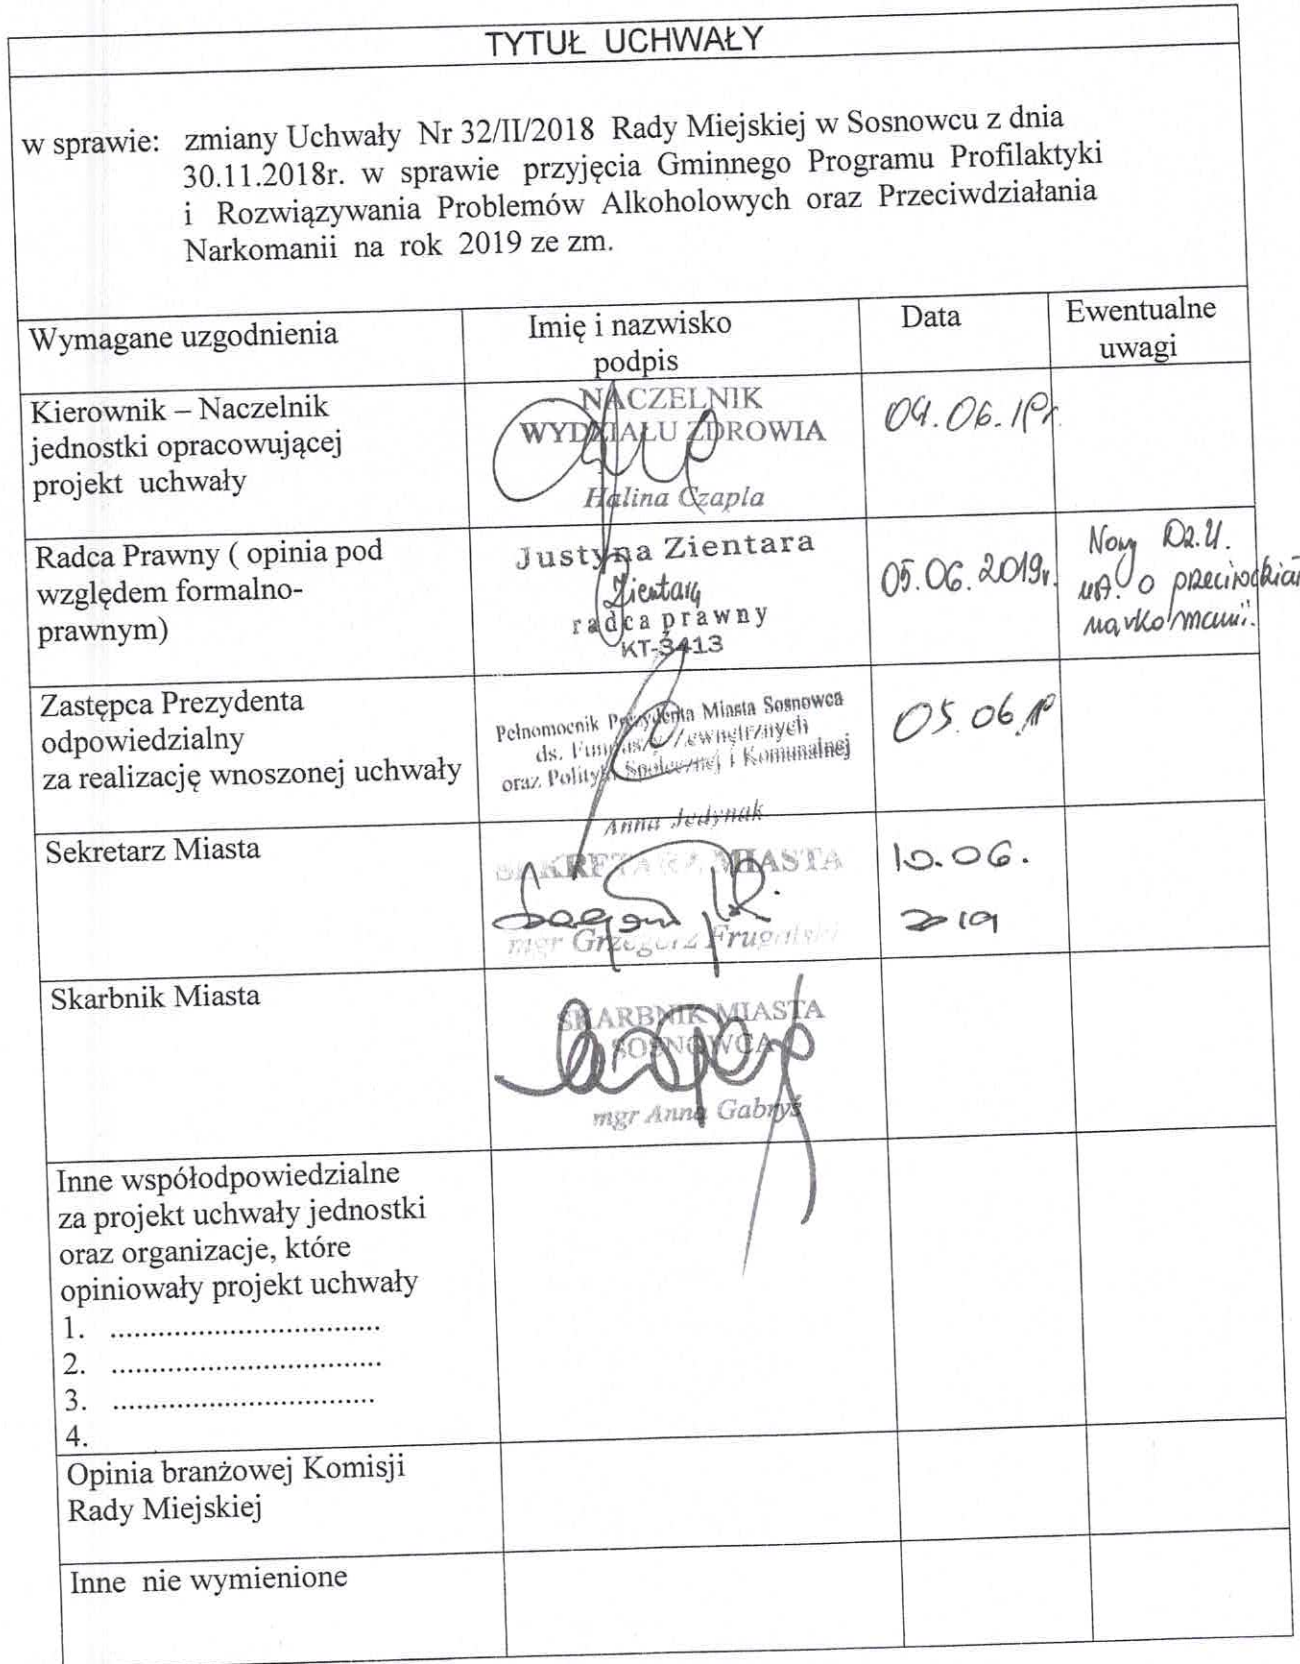 TYTUŁ UCHWAŁY
w sprawie: zmiany Uchwały Nr 32/II/2018 Rady Miejskiej w Sosnowcu z dnia
30.11.2018r. w sprawie przyjęcia Gminnego Programu Profilaktyki
i Rozwiązywania Problemów Alkoholowych oraz Przeciwdziałania
Narkomanii na rok 2019 ze zm.
Wymagane uzgodnienia
Imię i nazwisko
podpis
Data
Ewentualne
uwagi
Kierownik – Naczelnik
jednostki opracowującej
projekt uchwały
NACZELNIK
WYDZIAŁU ZDROWIA
Halina Czapla
04.06.19r.
Radca Prawny ( opinia pod
względem formalno-
prawnym)
Justyna Zientara
Zientara
radca prawny
KT-3413
05.06.2019r.
Nowy Dz.U.
o przeciwdział
narkomanii.
Zastępca Prezydenta
odpowiedzialny
za realizację wnoszonej uchwały
Pełnomocnik Prezydenta Miasta Sosnowca
ds. Funduszy Zewnętrznych
oraz Polityki Społecznej i Komunalnej
Anna Jedynak
05.06.19
Sekretarz Miasta
SEKRETARZ MIASTA
mgr Grzegorz Frugalski
10.06.
2019
Skarbnik Miasta
SKARBNIK MIASTA
SOSNOWCA
mgr Anna Gabryś
Inne współodpowiedzialne
za projekt uchwały jednostki
oraz organizacje, które
opiniowały projekt uchwały
1. ..................................
2. ..................................
3. .................................
4.
Opinia branżowej Komisji
Rady Miejskiej
Inne nie wymienione